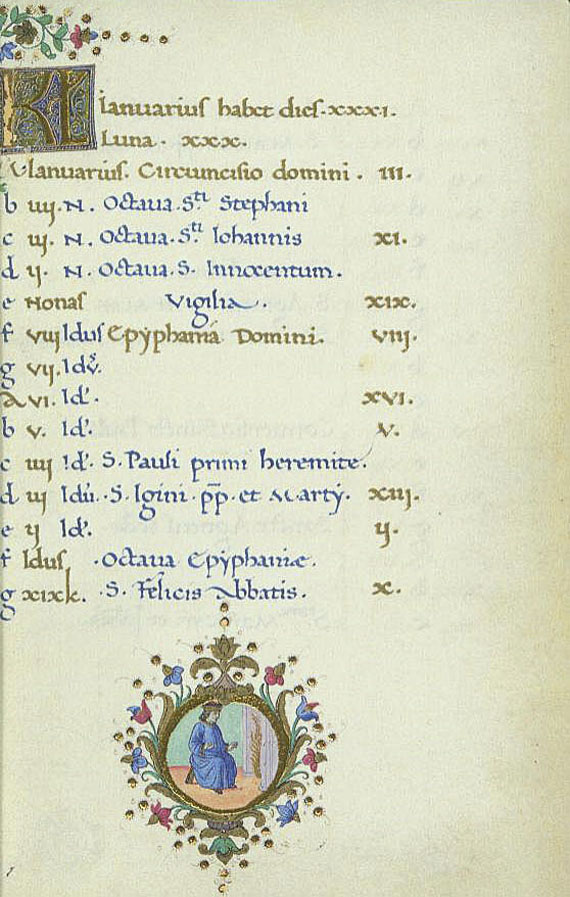 KL Ianuarius habet dies. xxxi.
Luna. xxx.
A Ianuarius. Circuncisio domini. III.
b iiij. N. Octaua. Sti Stephani
c iij. N. Octaua. Sti Iohannis XI.
d ij. N. Octaua. S. Innocentum.
e Nonas Vigilia. XIX.
f viij Idus Epyphania Domini. VIII.
g vij. Idus.
A vi. Id.
XVI.
b v. Id. V.
c iiij Id. S. Pauli primi heremite.
d iij Idus. S. Igini. pp. et Marty. XIII.
e ij Id. ij.
f Idus. Octaua Epyphaniae.
g xix k. S. Felicis Abbatis. X.